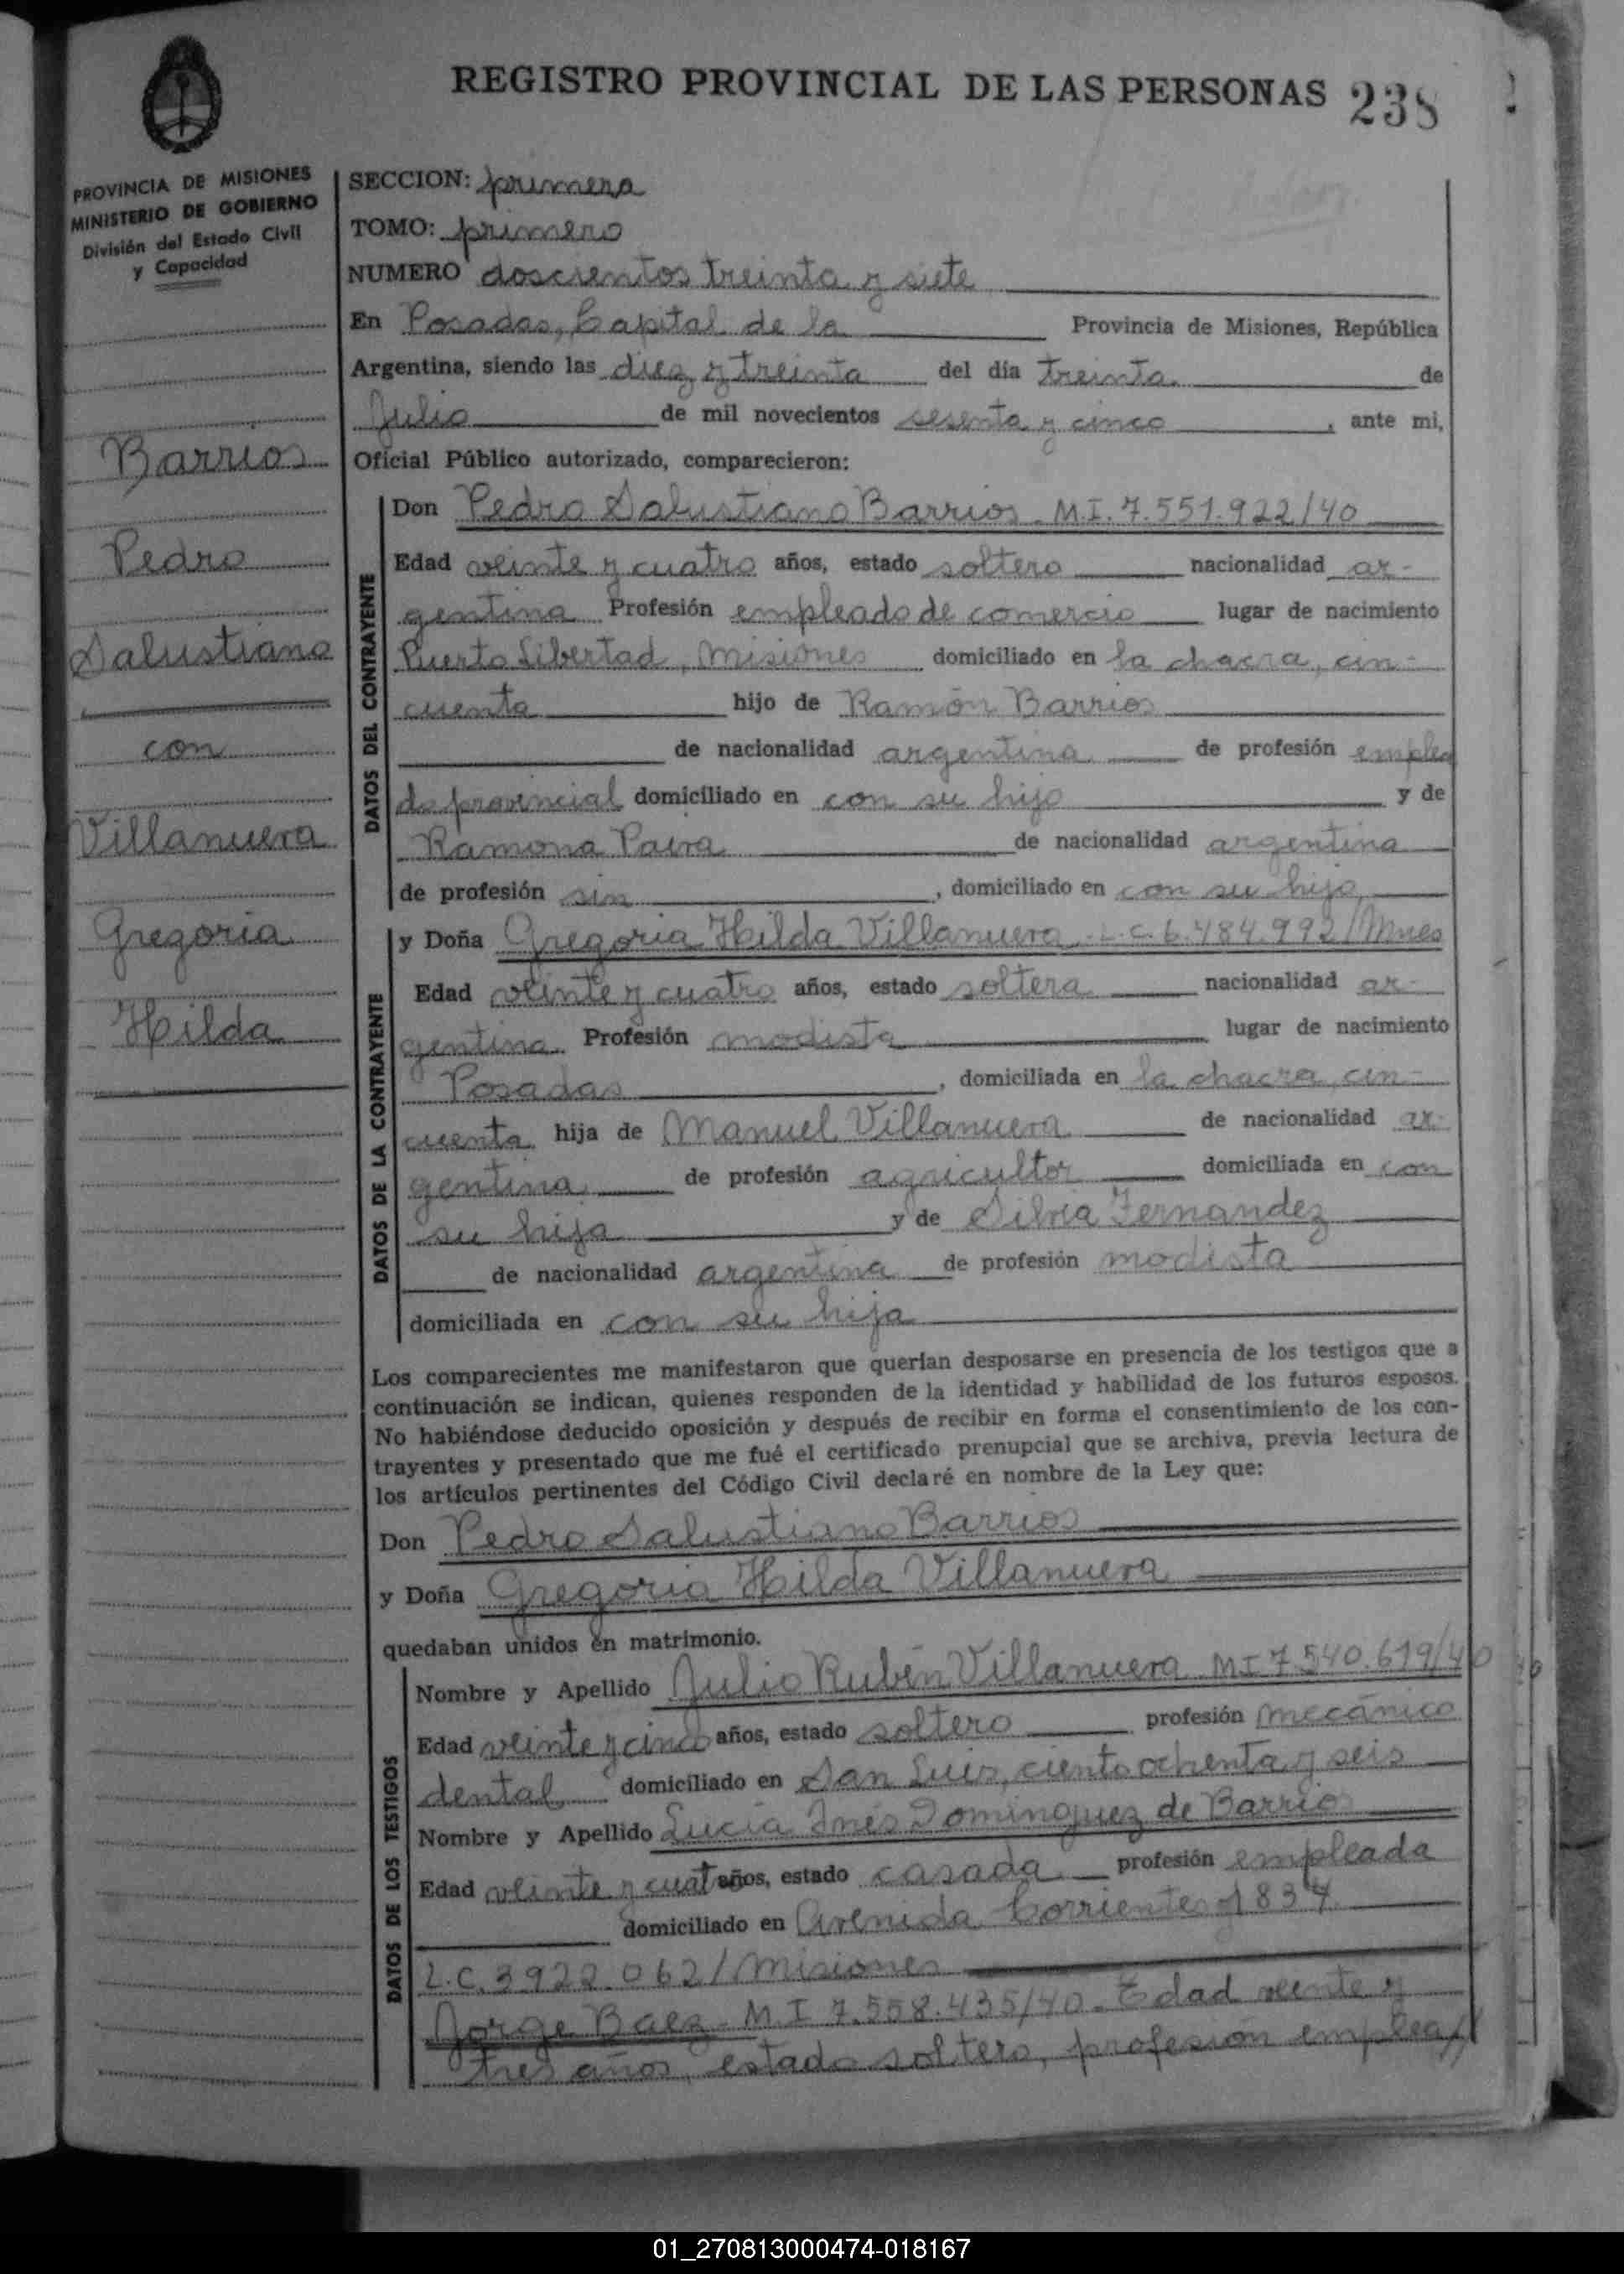 REGISTRO PROVINCIAL DE LAS PERSONAS 238
PROVINCIA DE MISIONES
MINISTERIO DE GOBIERNO
División del Estado Civil
y Capacidad
Barrios
Pedro
Salustiano
con
Villanueva
Gregoria
Hilda
SECCION: primera
TOMO: primero
NUMERO doscientos treinta y siete
En Posadas, Capital de la Provincia de Misiones, República
Argentina, siendo las diez y treinta del día treinta de
Julio de mil novecientos sesenta y cinco, ante mi,
Oficial Público autorizado, comparecieron:
DATOS DEL CONTRAYENTE
Don Pedro Salustiano Barrios M.I. 7.551.922/40
Edad veinte y cuatro años, estado soltero nacionalidad ar-
gentina Profesión empleado de comercio lugar de nacimiento
Puerto Libertad, Misiones domiciliado en la chacra, cin-
cuenta hijo de Ramón Barrios
de nacionalidad argentina de profesión emplea
do provincial domiciliado en con su hijo y de
Ramona Paiva de nacionalidad argentina
de profesión sin, domiciliado en con su hijo
DATOS DE LA CONTRAYENTE
y Doña Gregoria Hilda Villanueva L.C. 6.484.992/Mnes
Edad veinte y cuatro años, estado soltera nacionalidad ar-
gentina Profesión modista lugar de nacimiento
Posadas, domiciliada en la chacra, cin-
cuenta hija de Manuel Villanueva de nacionalidad ar-
gentina de profesión agricultor domiciliada en con
su hija y de Silvia Fernandez
de nacionalidad argentina de profesión modista
domiciliada en con su hija
Los comparecientes me manifestaron que querían desposarse en presencia de los testigos que a
continuación se indican, quienes responden de la identidad y habilidad de los futuros esposos.
No habiéndose deducido oposición y después de recibir en forma el consentimiento de los con-
trayentes y presentado que me fué el certificado prenupcial que se archiva, previa lectura de
los artículos pertinentes del Código Civil declaré en nombre de la Ley que:
Don Pedro Salustiano Barrios
y Doña Gregoria Hilda Villanueva
quedaban unidos en matrimonio.
DATOS DE LOS TESTIGOS
Nombre y Apellido Julio Rubén Villanueva MI 7.540.619/40
Edad veinte y cinco años, estado soltero profesión mecánico
dental domiciliado en San Luis, ciento ochenta y seis
Nombre y Apellido Lucía Inés Dominguez de Barrios
Edad veinte y cuat años, estado casada profesión empleada
domiciliado en Avenida Corrientes 1837
L.C. 3922.062/Misiones
Jorge Baez M.I 7.558.435/40. Edad veinte y
tres años, estado soltero, profesión emplea//
01_270813000474-018167